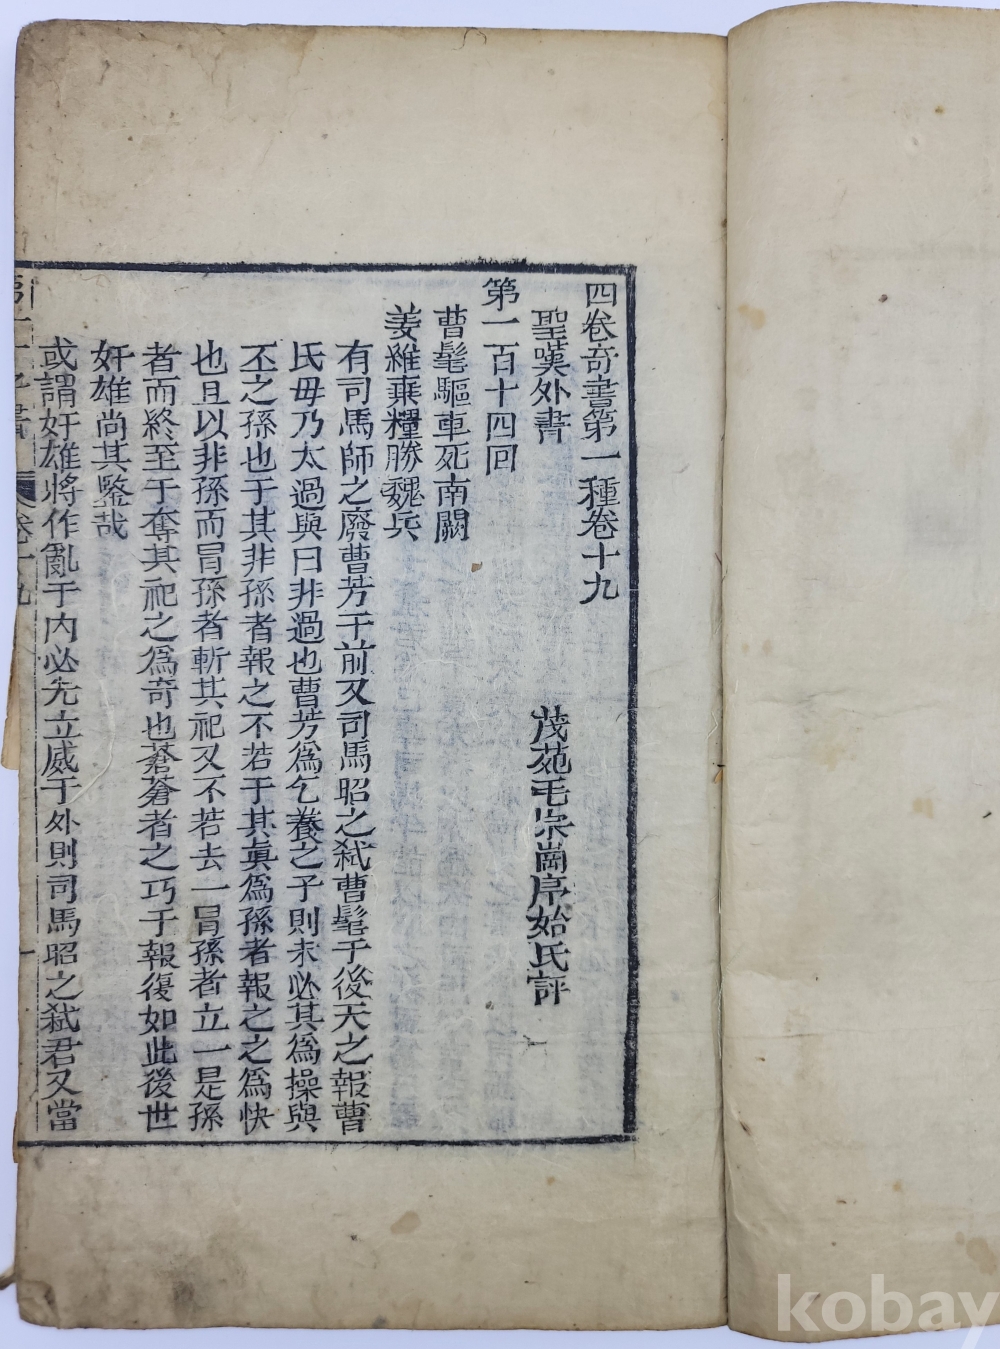 四卷奇書第一種卷十九
聖嘆外書
茂苑毛宗崗序始氏評
第一百十四回
曹髦驅車死南闕
姜維棄糧勝魏兵
有司馬師之廢曹芳于前又司馬昭之弑曹髦于後天之報曹
氏毋乃太過與曰非過也曹芳爲乞養之子則未必其爲操與
丕之孫也于其非孫者報之不若于其眞爲孫者報之之爲快
也且以非孫而冒孫者斬其祀又不若去一冒孫者立一是孫
者而終至于奪其祀之爲奇也蒼蒼者之巧于報復如此後世
奸雄尚其鑒哉
或謂奸雄將作亂于內必先立威于外則司馬昭之弑君又當
卷十九
kobay